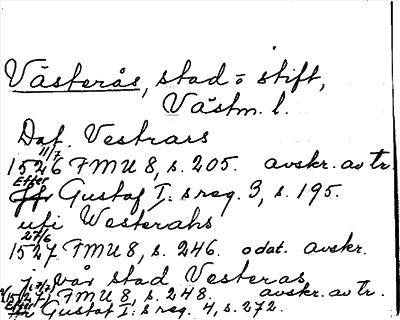 Västerås, stad o stift,
Västm. l.
Dat. Vestrars
11/7
1526 FMU 8, s. 205. avskr. av tr.
Efter
Gustaf I:s reg. 3, s. 195.
uti Westerahs
27/6
1527 FMU 8, s. 246. odat. avskr.
j vår stad Vesteras
1527 FMU 8, s. 248. avskr. av tr.
Gustaf I:s reg. 4, s. 272.